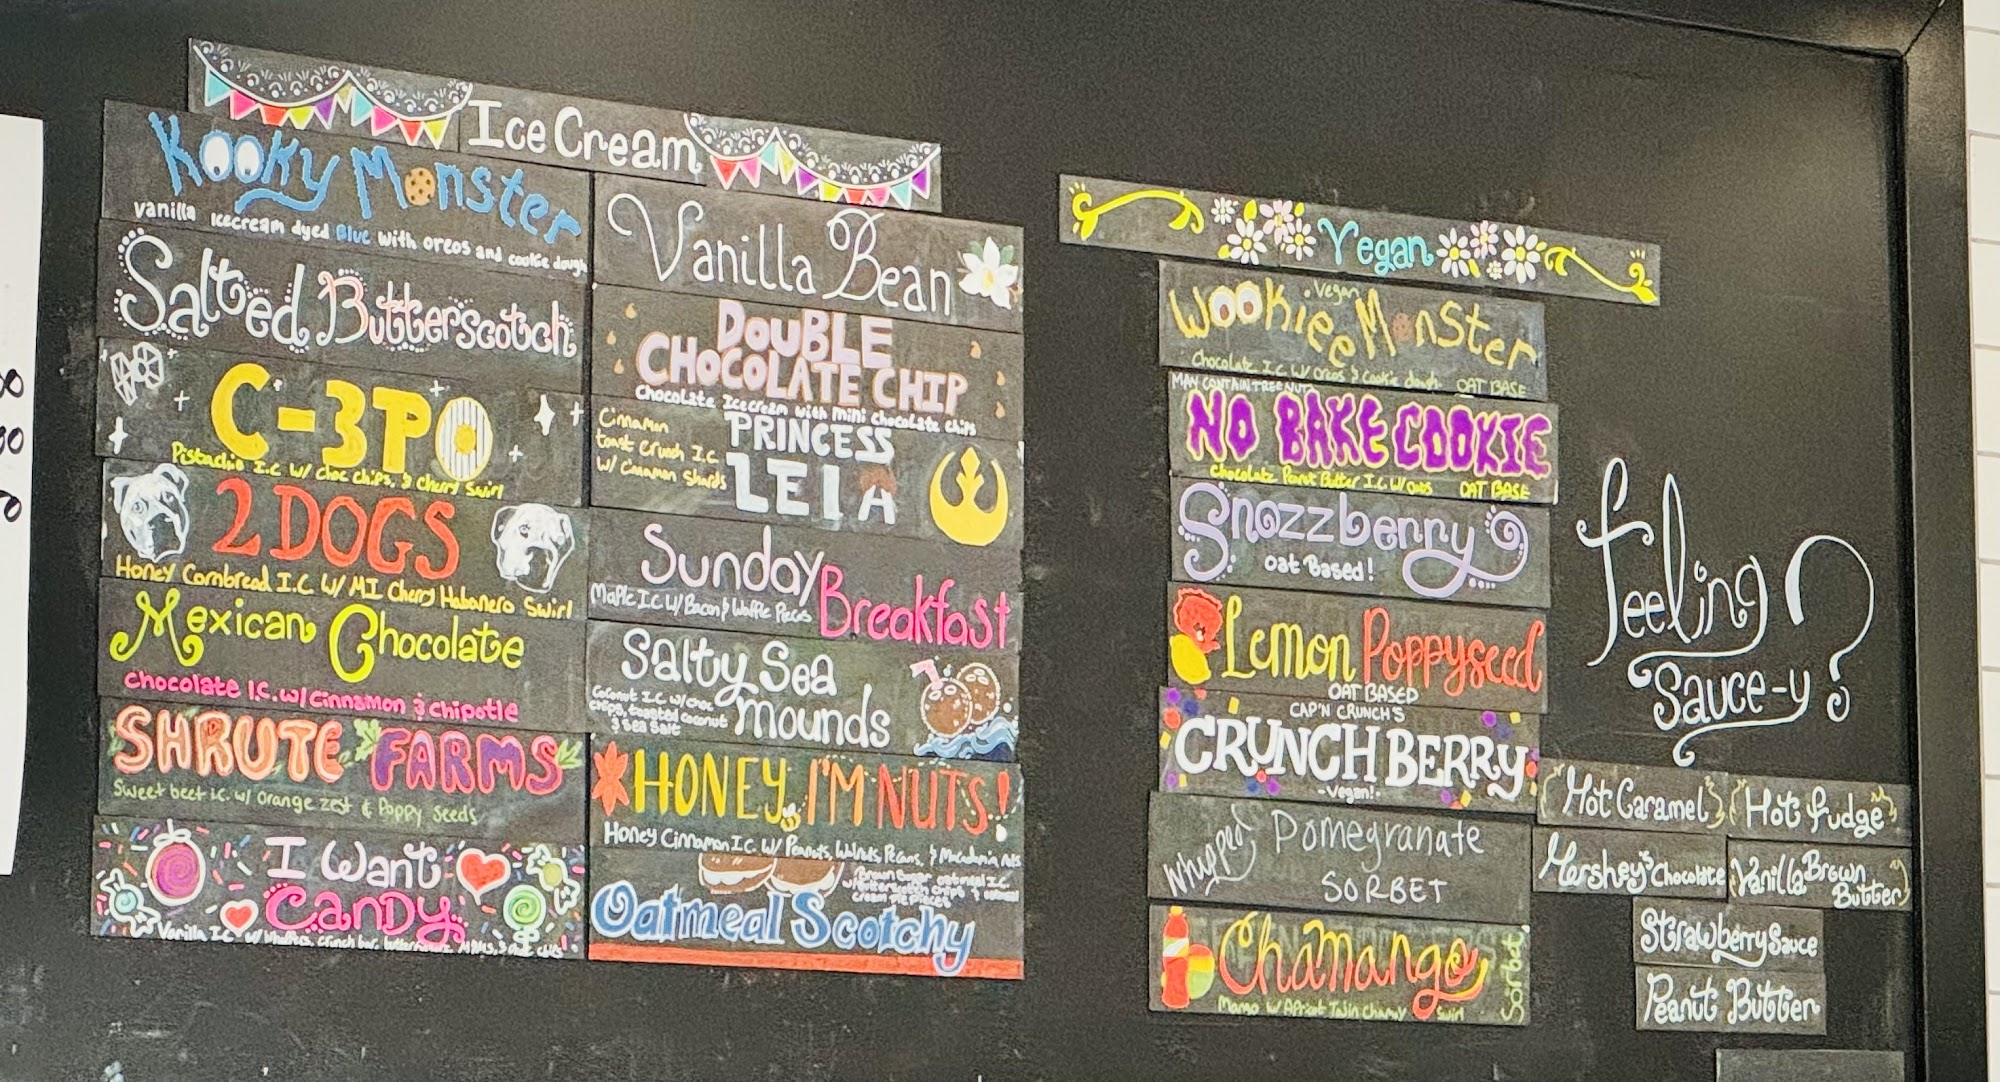 Ice Cream
Kooky Monster
vanilla icecream dyed Blue with oreos and cookie dough
Salted Butterscotch
C-3PO
Pistachio I.C. w/ choc chips, & cherry swirl
2 DOGS
Honey Cornbread I.C. w/ MI Cherry Habanero Swirl
Mexican Chocolate
chocolate I.C. w/ cinnamon & chipotle
SHRUTE FARMS
Sweet beet I.C. w/ orange zest & Poppy Seeds
I Want
Candy
Vanilla I.C. w/ Whoppers, crunch bar,
Vanilla Bean
DOUBLE
CHOCOLATE CHIP
chocolate Icecream with mini chocolate chips
PRINCESS
LEIA
Cinnamon
toast Crunch I.C.
w/ cinnamon shards
Sunday
Breakfast
Maple I.C. w/ Bacon & Waffle Pieces
Salty Sea
mounds
Coconut I.C. w/ choc
chips, toasted coconut
& sea salt
HONEY, I'M NUTS!
Honey Cinnamon I.C. w/ Peanuts, Walnuts, Pecans, & Macadamia Nuts
Brown Sugar oatmeal I.C.
w/ Butterscotch chips & oatmeal
cream pie pieces
Oatmeal Scotchy
Vegan
Vegan
Wookiee Monster
Chocolate I.C. w/ Oreos & Cookie dough OAT BASE
MAY CONTAIN TREE NUTS
NO BAKE COOKIE
Chocolate Peanut Butter I.C. w/ Oats OAT BASE
Snozzberry
oat Based!
Lemon Poppyseed
OAT BASED
CAP'N CRUNCH'S
CRUNCH BERRY
-Vegan!-
Whipped
Pomegranate
SORBET
Chamango
Sorbet
Mango w/ Apricot Twin Chamoy Swirl
feeling
Sauce-y?
Hot Caramel
Hot fudge
Hershey's Chocolate
Vanilla Brown
Butter
Strawberry Sauce
Peanut Butter